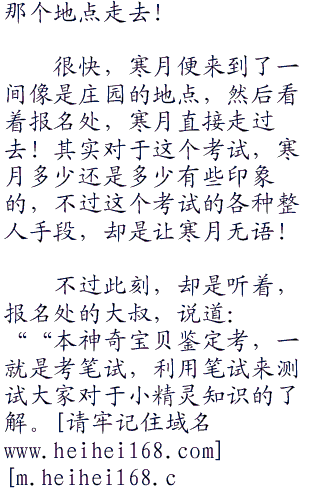 那个地点走去！
很快，寒月便来到了一
间像是庄园的地点，然后看
着报名处，寒月直接走过
去！其实对于这个考试，寒
月多少还是多少有些印象
的，不过这个考试的各种整
人手段，却是让寒月无语！
不过此刻，却是听着，
报名处的大叔，说道：
““本神奇宝贝鉴定考，一
就是考笔试，利用笔试来测
试大家对于小精灵知识的了
解。[请牢记住域名
www.heihei168.com]
[m.heihei168.c